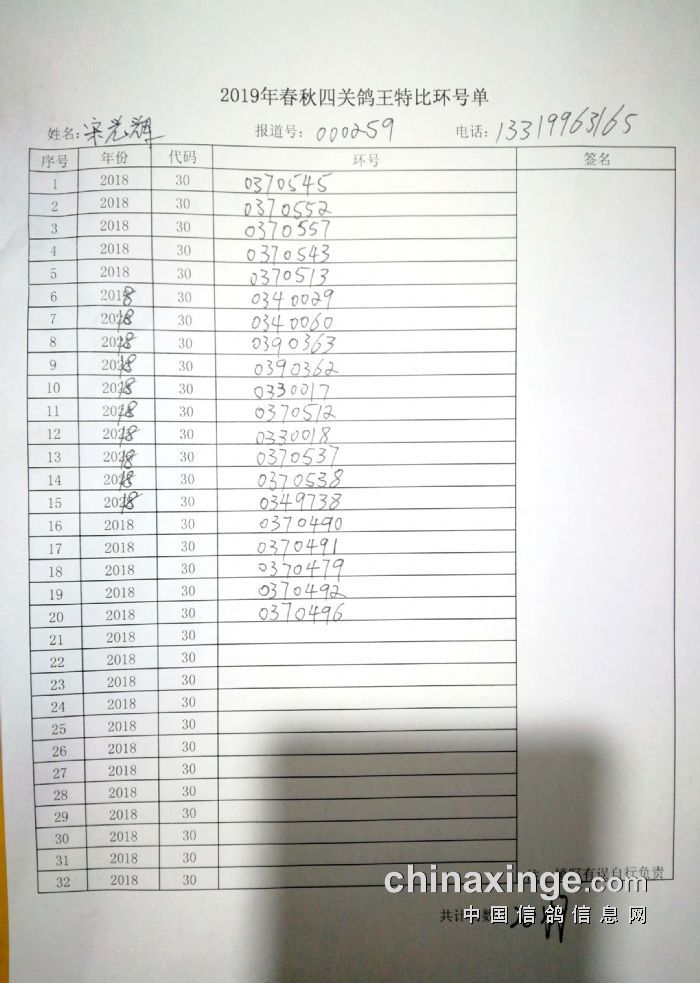 2019年春秋四关鸽王特比环号单
姓名: 宋光辉 报道号: 000259 电话: 13319963165
序号 年份 代码 环号 签名
1 2018 30 0370545
2 2018 30 0370552
3 2018 30 0370557
4 2018 30 0370543
5 2018 30 0370513
6 2018 30 0340029
7 2018 30 0340060
8 2018 30 0390363
9 2018 30 0390362
10 2018 30 0330017
11 2018 30 0370512
12 2018 30 0330018
13 2018 30 0370537
14 2018 30 0370538
15 2018 30 0349738
16 2018 30 0370490
17 2018 30 0370491
18 2018 30 0370479
19 2018 30 0370492
20 2018 30 0370496
21 2018 30
22 2018 30
23 2018 30
24 2018 30
25 2018 30
26 2018 30
27 2018 30
28 2018 30
29 2018 30
30 2018 30
31 2018 30
32 2018 30
有误自行负责
chinaxinge.com
共计 数
中国信鸽信息网